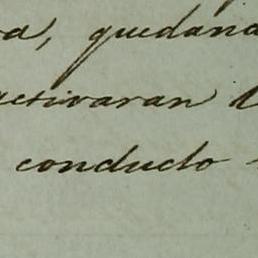 quedana
activaran
conducto